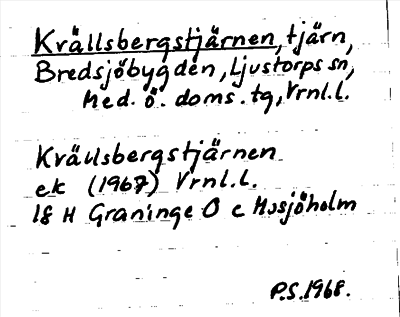 Krällsbergstjärnen, tjärn,
Bredsjöbygden, Ljustorps sn,
Med. ö. doms. tg, Vrnl.l.
Krällsbergstjärnen
ek (1967) Vrnl.l.
18 H Graninge O c Mssjöholm
P.S. 1968.